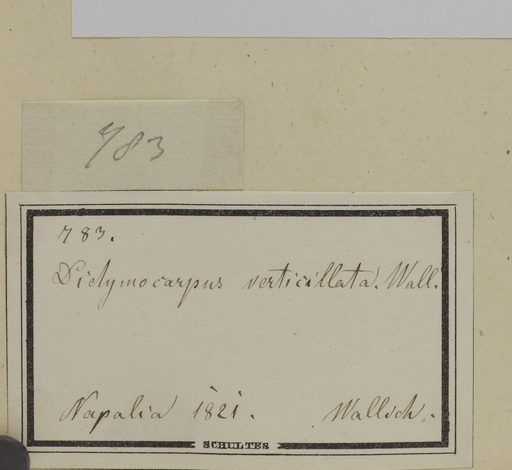 783
783.
Didymocarpus verticillata. Wall.
Napalia 1821. Wallich.
SCHULTES